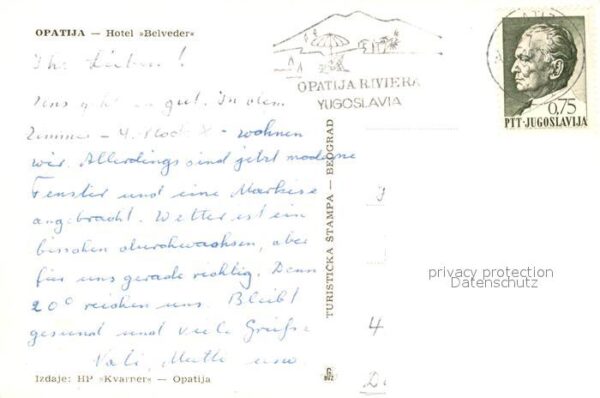 OPATIJA — Hotel »Belveder«
Ihr Lieben!
Uns geht es gut. In dem
Zimmer - 4. Stock X - wohnen
wir. Allerdings sind jetzt moderne
Fenster und eine Markise
angebracht. Wetter ist ein
bisschen durchwachsen, aber
für uns gerade richtig. Denn
20° reichen uns. Bleibt
gesund und viele Grüße
Vati, Mutti usw
Izdaje: HP »Kvarner« — Opatija
TURISTIČKA ŠTAMPA — BEOGRAD
OPATIJA RIVIERA
YUGOSLAVIA
0,75
PTT-JUGOSLAVIJA
privacy protection
Datenschutz
4